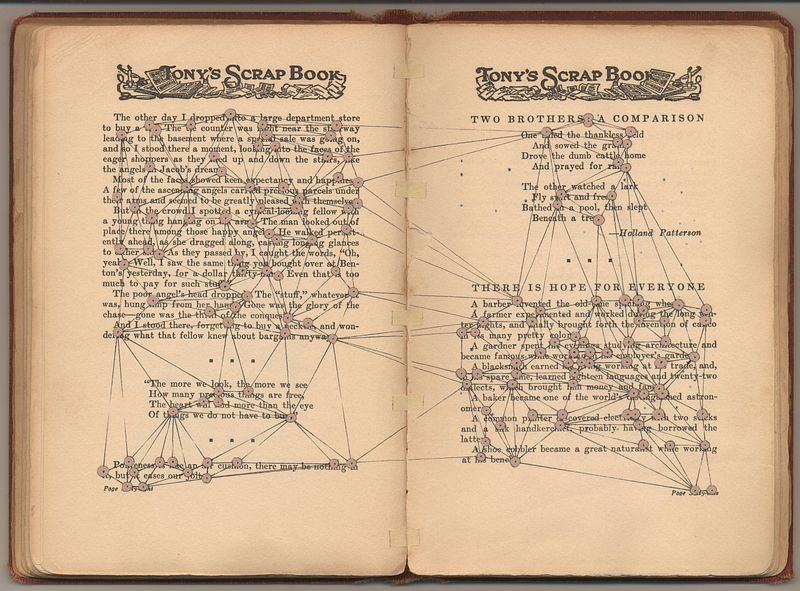 TONY'S SCRAP BOOK
The other day I dropped into a large department store
to buy a The counter was right near the stairway
leading to the basement where a special sale was going on,
and so I stood there a moment, looking into the faces of the
eager shoppers as they filed up and down the stairs, like
the angels in Jacob's dream.
Most of the faces showed keen expectancy and happiness.
A few of the ascending angels carried precious parcels under
their arms and seemed to be greatly pleased with themselves.
But in the crowd I spotted a cynical-looking fellow with
a young thing hanging on his arm. The man looked out of
place there among those happy angels. He walked persist-
ently ahead, as she dragged along, casting longing glances
to either side. As they passed by, I caught the words, "Oh,
yeah? Well, I saw the same thing you bought over at Ben-
ton's yesterday, for a dollar thirty-nine. Even that is too
much to pay for such stuff."
The poor angel's head dropped. The "stuff," whatever it
was, hung limp from her hand. Gone was the glory of the
chase—gone was the thrill of the conquest.
And I stood there, forgetting to buy a necktie, and won-
dering what that fellow knew about bargains anyway.
"The more we look, the more we see
How many precious things are free,
The heart will find more than the eye
Of things we do not have to buy."
Politeness is like an air cushion, there may be nothing in
it, but it eases our jolts.
Page
TONY'S SCRAP BOOK
TWO BROTHERS: A COMPARISON
One tilled the thankless field
And sowed the grain
Drove the dumb cattle home
And prayed for rain.
The other watched a lark
Fly swift and free
Bathed in a pool, then slept
Beneath a tree.
—Holland Patterson
THERE IS HOPE FOR EVERYONE
A barber invented the old-time spinning wheel.
A farmer experimented and worked during the long win-
ter nights, and finally brought forth the invention of calico
in its many pretty colors.
A gardner spent his evenings studying architecture and
became famous while working in his employer's garden.
A blacksmith earned his living working at his trade, and,
in his spare time, learned eighteen languages and twenty-two
dialects, which brought him money and fame.
A baker became one of the world's distinguished astron-
omers.
A common printer discovered electricity with two sticks
and a silk handkerchief, probably having borrowed the
latter.
A shoe cobbler became a great naturalist while working
at his bench.
Page